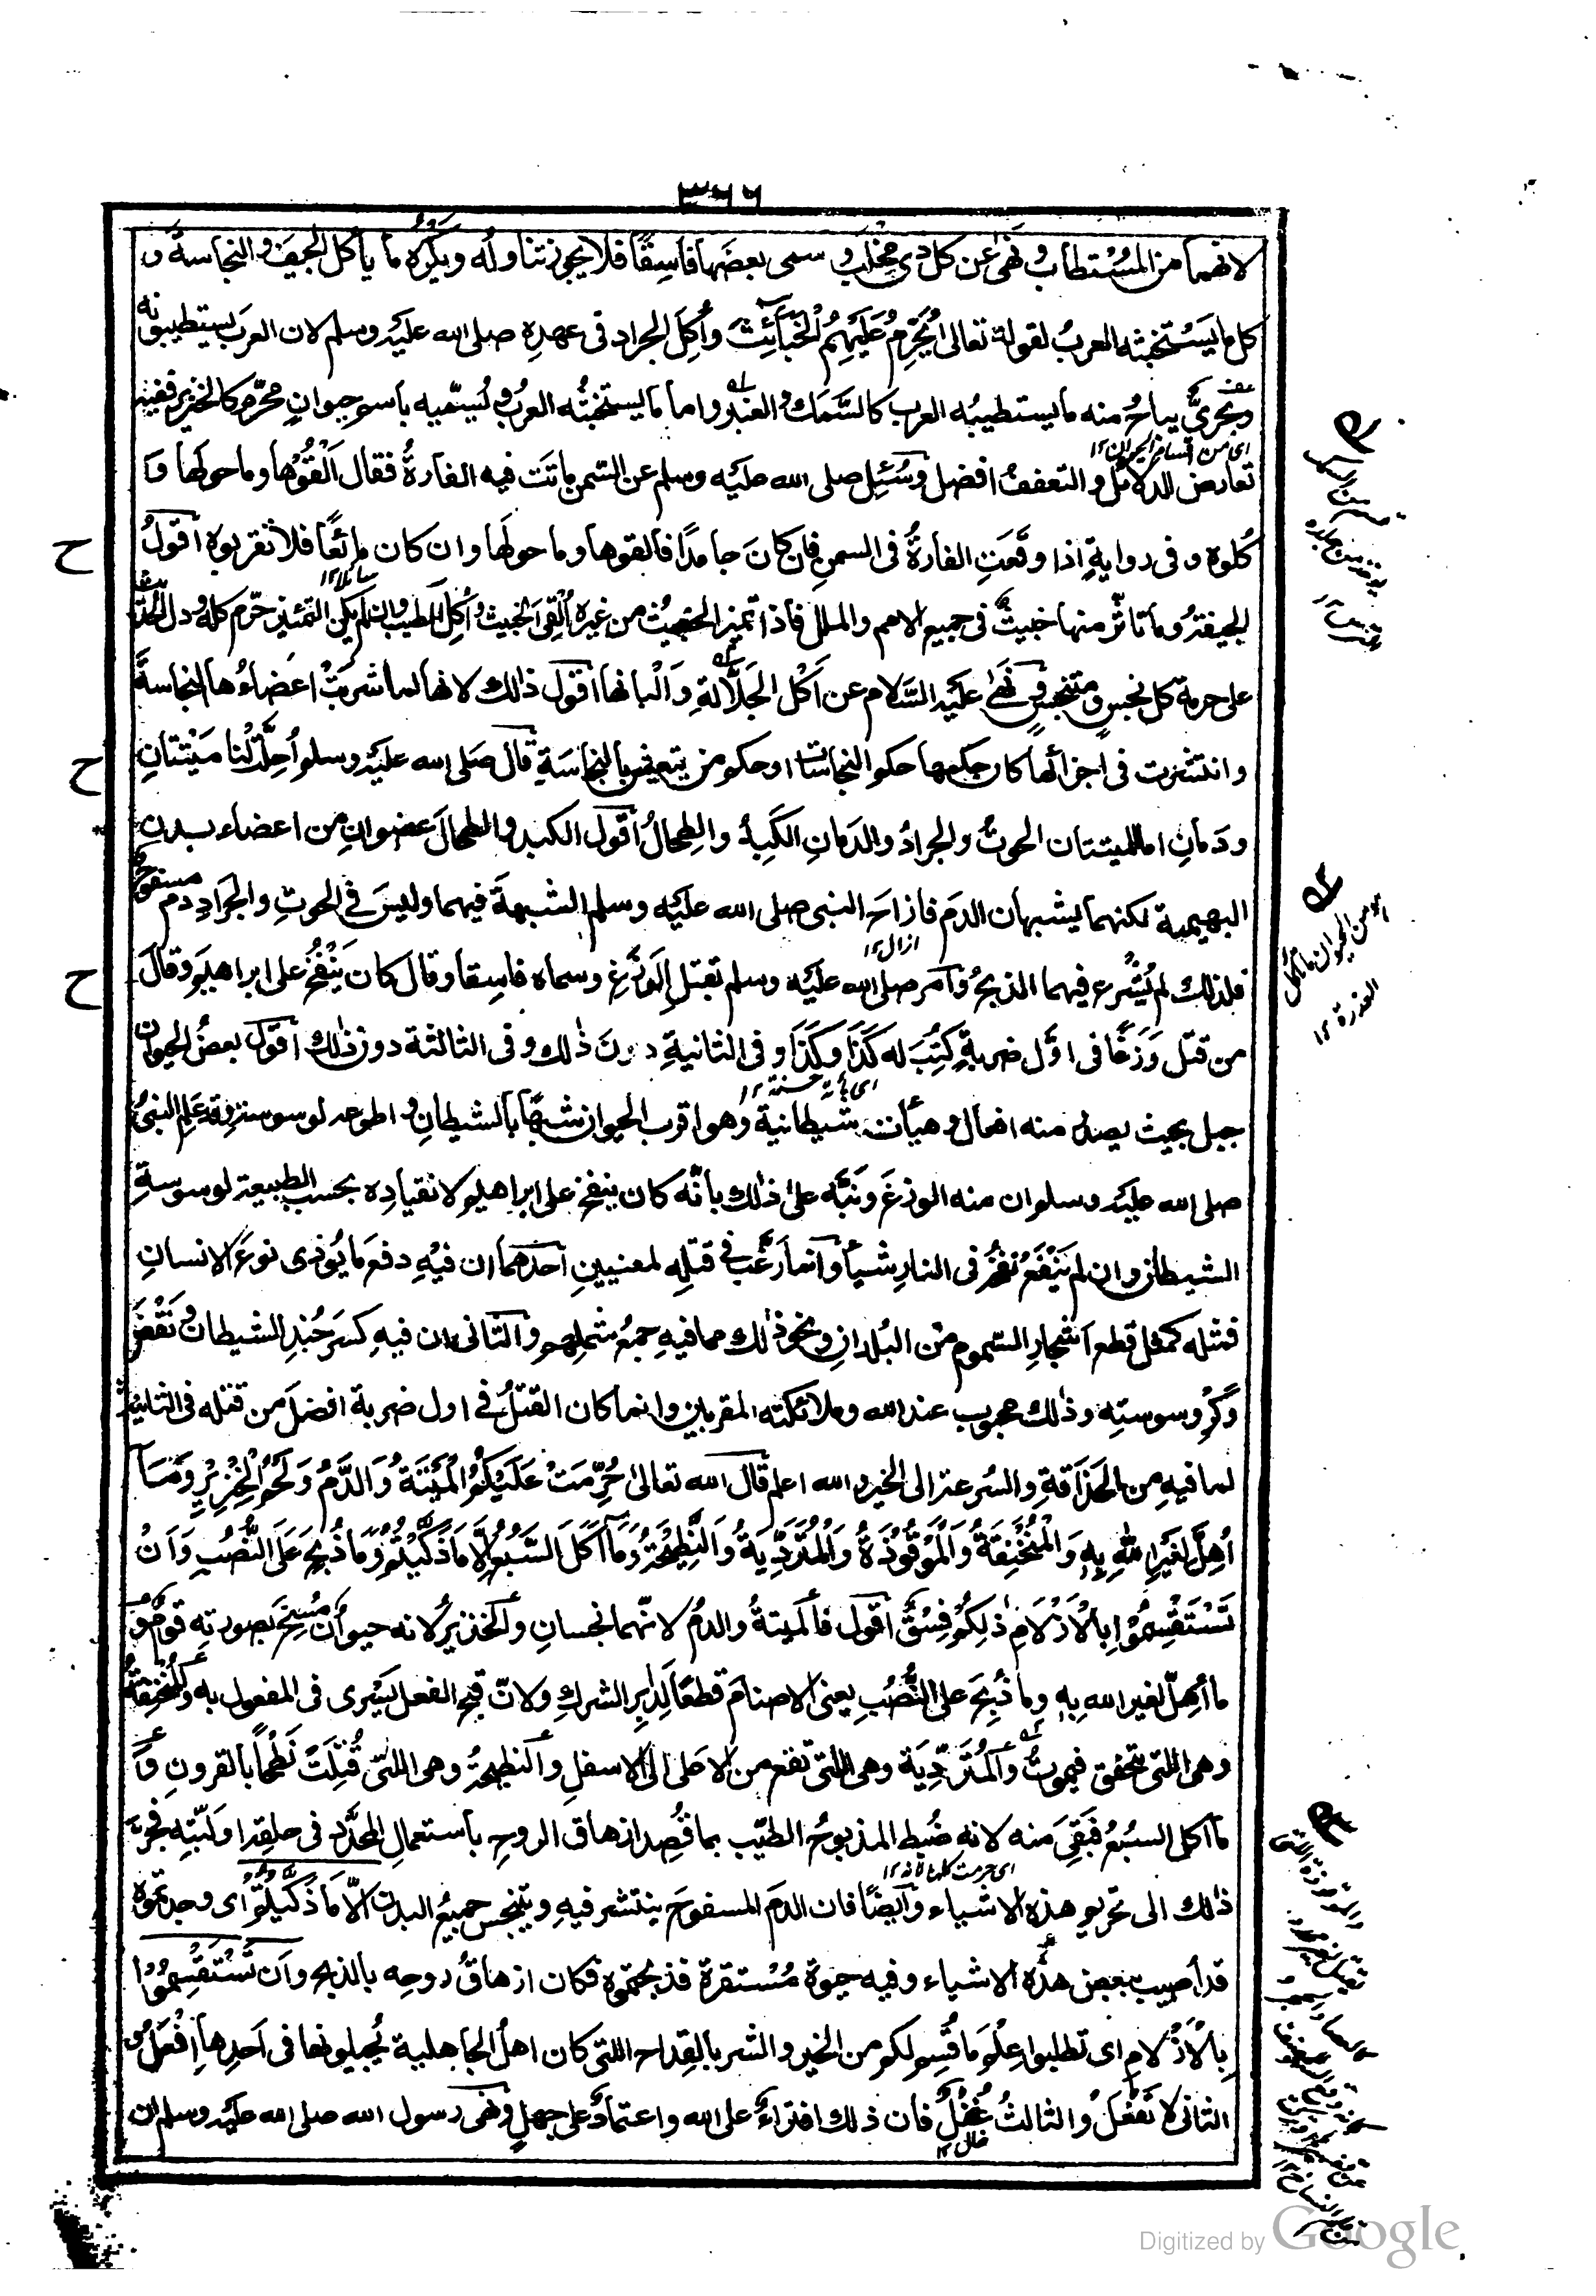 ٣٦٦
لانهما من المُسْتطاب ونَهٰى عن كل ذى مِخْلَب و سمى بعضَها فاسِقًا فلا يجوز تناوله ويكره ما يأكل الجيفَ والنجاسةَ و
كل ما يَسْتخبثه العربُ لقوله تعالى يُحَرِّمُ عَلَيْهِمُ الْخَبَآئِثَ وأُكِلَ الجراد فى عهدِه صلى الله عليه وسلم لان العرب يستطيبونه
وبحرىٌّ يباحُ منه ما يستطيبُه العرب كالسَّمَك والعنبر واما ما يستخبثُه العربُ ويُسمّيه باسم حيوانٍ محرّم كالخنزير ففيه
اى من اقسام الحيوان ١٢
تعارض الدلائل والتعففُ افضل وسُئِل صلى الله عليه وسلم عن السمن ماتت فيه الفارةُ فقال اَلْقُوْها وما حولَها وَ
كُلوه وفى روايةٍ اذا وقَعتِ الفارةُ فى السمنِ فان كانَ جامدًا فالقوها وما حولَها وان كان مائعًا فلا تقربوه اقولُ
سائلا ١٢
الجيفةُ وما تاثّر منها خبيثٌ فى جميع الامم والملل فاذا تميز الخبيثُ من غيره اُلْقِىَ الخبيثُ واُكِلَ الطيب وان لم يكن التميّز حرّم كله ودل الحديث
على حرمة كل نجسٍ ومتنجسٍ ونَهٰى عليه السَّلام عن اَكْل الجَلّالةِ وَاَلْبانها اقول ذلك لانها لما شربتْ اعضاءُها النجاسةَ
وانتشرت فى اجزائها كان حكمها حكم النجاسات او حكم من يتعيش بالنجاسَةِ قال صلى الله عليه وسلم اُحِلَّتْ لنا مَيْتتانِ
ودَمانِ اما الميتتان الحوتُ والجرادُ والدَمانِ الكَبِدُ والطِحالُ اقول الكبد والطحالَ عضوانِ من اعضاء بدن
البهيمة لكنهما يشبهان الدمَ فازاحَ النبى صلى الله عليه وسلم الشبهةَ فيهما وليسَ فى الحوتِ والجرادِ دم مسفوح
ازال ١٢
فلذلك لم يُشرع فيهما الذبحُ وامر صلى الله عليه وسلم بقتلِ الوَزَغِ وسماه فاسِقا وقال كان يَنْفُخُ على ابراهيم وقالَ
من قتل وَزَغًا فى اوّل ضربةٍ كُتِبَ له كَذَا وكَذَا وفى الثانيةِ دونَ ذلك وفى الثالثة دون ذلك اقول بعضُ الحيوان
اى مائة حسنة ١٢
جبل بحيث يصدر منه افعال وهيأت شيطانية وهو اقرب الحيوان شبهًا بالشيطانِ واطوعه لوسوسته وقد علم النبىُّ
صلى الله عليه وسلم ان منه الوزغَ ونَبّه علىٰ ذلك بأنّه كان ينفخ على ابراهيم لانقيادِه بحسب الطبيعة لوسوسةِ
الشيطان وان لم يَنْفَعْ نفخُه فى النارِ شيأ وانما رغّب فى قتلِه لمعنيينِ احدهما ان فيْهِ دفعَ ما يُوذى نوعَ الانسانِ
فمثله كمثل قطع اشجارِ السموم من البُلدان ونحو ذلك مما فيهِ جمعُ شملِهم والثانى ان فيهِ كسرَ جُندِ الشيطان ونَقْضَ
وكْرِ وسوستِه وذلك محبوب عند الله وملائكته المقربين وانما كان القتلُ فى اول ضربة افضلَ من قتله فى الثانية
لما فيهِ من الحَذاقةِ والسُرعة الى الخير والله اعلم قال الله تعالىٰ حُرِّمَتْ عَلَيْكُمُ الْمَيْتَةُ وَالدَّمُ وَلَحْمُ الْخِنْزِيْرِ وَمَآ
اُهِلَّ لِغَيْرِ اللهِ بِهٖ وَالْمُنْخَنِقَةُ وَالْمَوْقُوْذَةُ وَالْمُتَرَدِّيَةُ وَالنَّطِيْحَةُ وَمَآ اَكَلَ السَّبُعُ اِلَّا مَا ذَكَّيْتُمْ وَمَا ذُبِحَ عَلَى النُّصُبِ وَاَنْ
تَسْتَقْسِمُوْا بِالْاَزْلَامِ ذٰلِكُمْ فِسْقٌ اقول فالميتةُ والدمُ لانّهما نجسانِ والخنزيرُ لانه حيوانٌ مُسِخَ بصورتِه قومٌ و
ما اُهِلّ لغير الله بِه وما ذُبِحَ على النُّصُبِ يعنى الاصنامَ قطعًا لدابرِ الشركِ ولانّ قبحَ الفعل يَسْرى فى المفعول به والمنخنقةُ
وهى اللتى تختنق فيموتُ والمُتَردِّيَة وهى اللتى تقع من الاعلى الى الاسفلِ والنطيحةُ وهى اللتى قُتِلَتْ نَطْحًا بالقرونِ وَ
ما اكل السبُعُ فبَقِىَ منه لانه ضُبِط المذبوحُ الطيّب بما قُصِد ازهاق الروحِ باستعمالِ المحدَّد فى حلقه او لَبّتِه فجرّ
اى حرمت كلها لانه ١٢
ذلك الى تحريم هذه الاشياء وايضًا فان الدمَ المسفوحَ ينتشر فيه ويتنجس جميعُ البدن اِلّا مَا ذَكَّيْتُمْ اى وجدتموه
قد اُصيب ببعض هذه الاشياء وفيه حيوة مُسْتقرة فذبحتموه فكان ازهاقُ روحِه بالذبح وَاَنْ تَسْتَقْسِمُوْا
بِالْاَزْلَامِ اى تطلبوا عِلْمَ ما قُسِم لكم من الخير والشر بالقِداح اللتى كان اهلُ الجاهلية يُجيلونها فى اَحدِها اِفْعَلْ و
الثانى لا تَفْعَلْ والثالثُ غُفْلٌ فان ذلك افتراءٌ على الله واعتمادٌ على جهلٍ ونَهٰى رسول الله صلى الله عليه وسلم ان
خال ١٢
ح
ح
ح
Digitized by Google